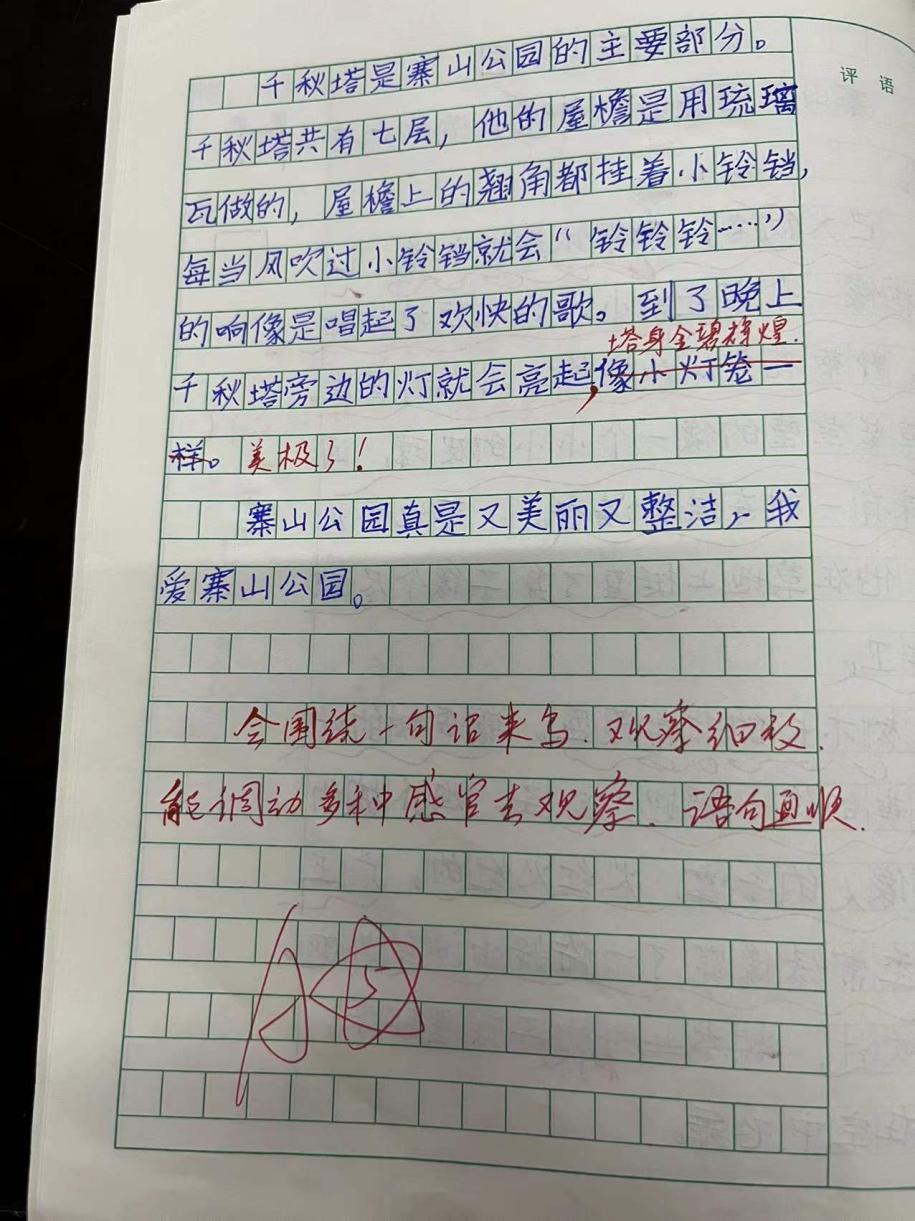 评语
千秋塔是寨山公园的主要部分。
千秋塔共有七层，他的屋檐是用琉璃
瓦做的，屋檐上的翘角都挂着小铃铛，
每当风吹过小铃铛就会“铃铃铃……”
的响像是唱起了欢快的歌。到了晚上
塔身金碧辉煌.
千秋塔旁边的灯就会亮起，像小灯笼一
样。美极了！
寨山公园真是又美丽又整洁，我
爱寨山公园。
会围绕一句话来写.观察细致.
能调动多种感官去观察.语句通顺.